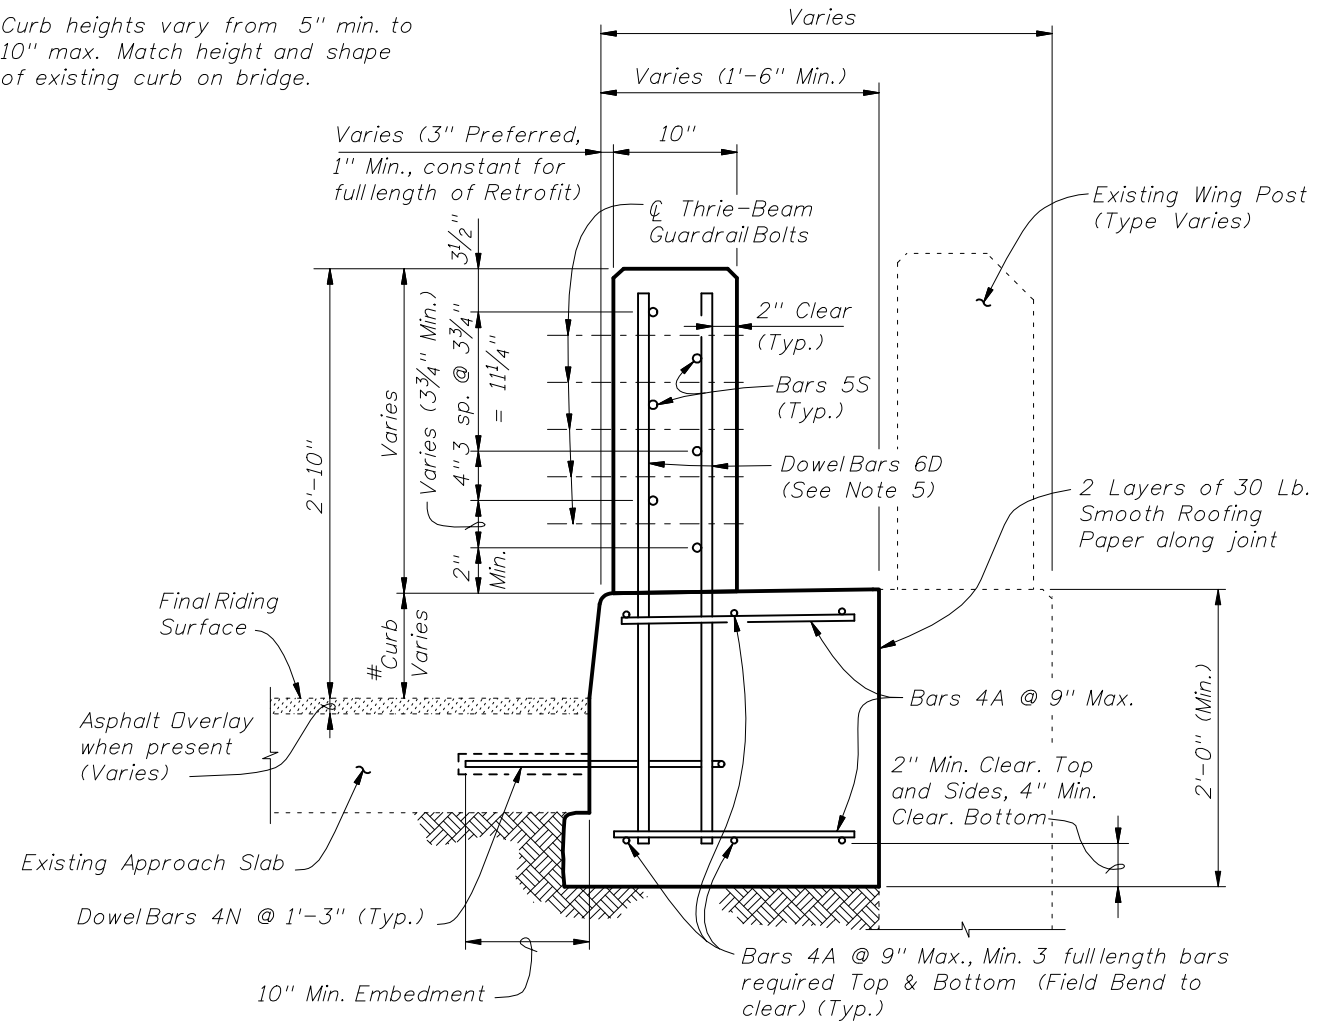 Curb heights vary from 5" min. to
10" max. Match height and shape
of existing curb on bridge.
Varies
Varies (1'-6" Min.)
Varies (3" Preferred,
1" Min., constant for
full length of Retrofit)
10"
℄ Thrie-Beam
Guardrail Bolts
Existing Wing Post
(Type Varies)
3½"
2'-10"
Varies
Varies (3¾" Min.)
3 sp. @ 3¾"
= 11¼"
4"
2"
Min.
2" Clear
(Typ.)
Bars 5S
(Typ.)
Dowel Bars 6D
(See Note 5)
2 Layers of 30 Lb.
Smooth Roofing
Paper along joint
Final Riding
Surface
#Curb
Varies
Asphalt Overlay
when present
(Varies)
Bars 4A @ 9" Max.
2'-0" (Min.)
2" Min. Clear. Top
and Sides, 4" Min.
Clear. Bottom
Existing Approach Slab
Dowel Bars 4N @ 1'-3" (Typ.)
10" Min. Embedment
Bars 4A @ 9" Max., Min. 3 full length bars
required Top & Bottom (Field Bend to
clear) (Typ.)